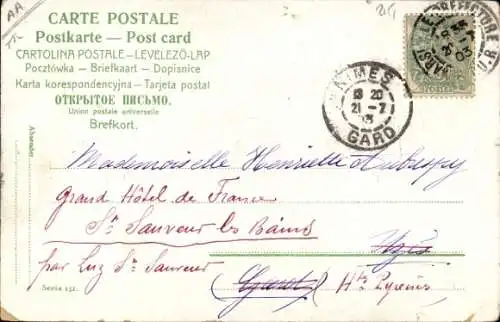 CARTE POSTALE
Postkarte — Post card
CARTOLINA POSTALE – LEVELEZŐ-LAP
Pocztówka – Briefkaart – Dopisnice
Karta korespondencyjna – Tarjeta postal
ОТКРЫТОЕ ПИСЬМО.
Union postale universelle
Brefkort.
NIMES
13 20
21 - 7
GARD
Absender
Mademoiselle Henriette
Grand Hôtel de France
St Sauveur les Bains
Uzès
par Luz St Sauveur
(Gard) Htes Pyrénées
Serie 152.